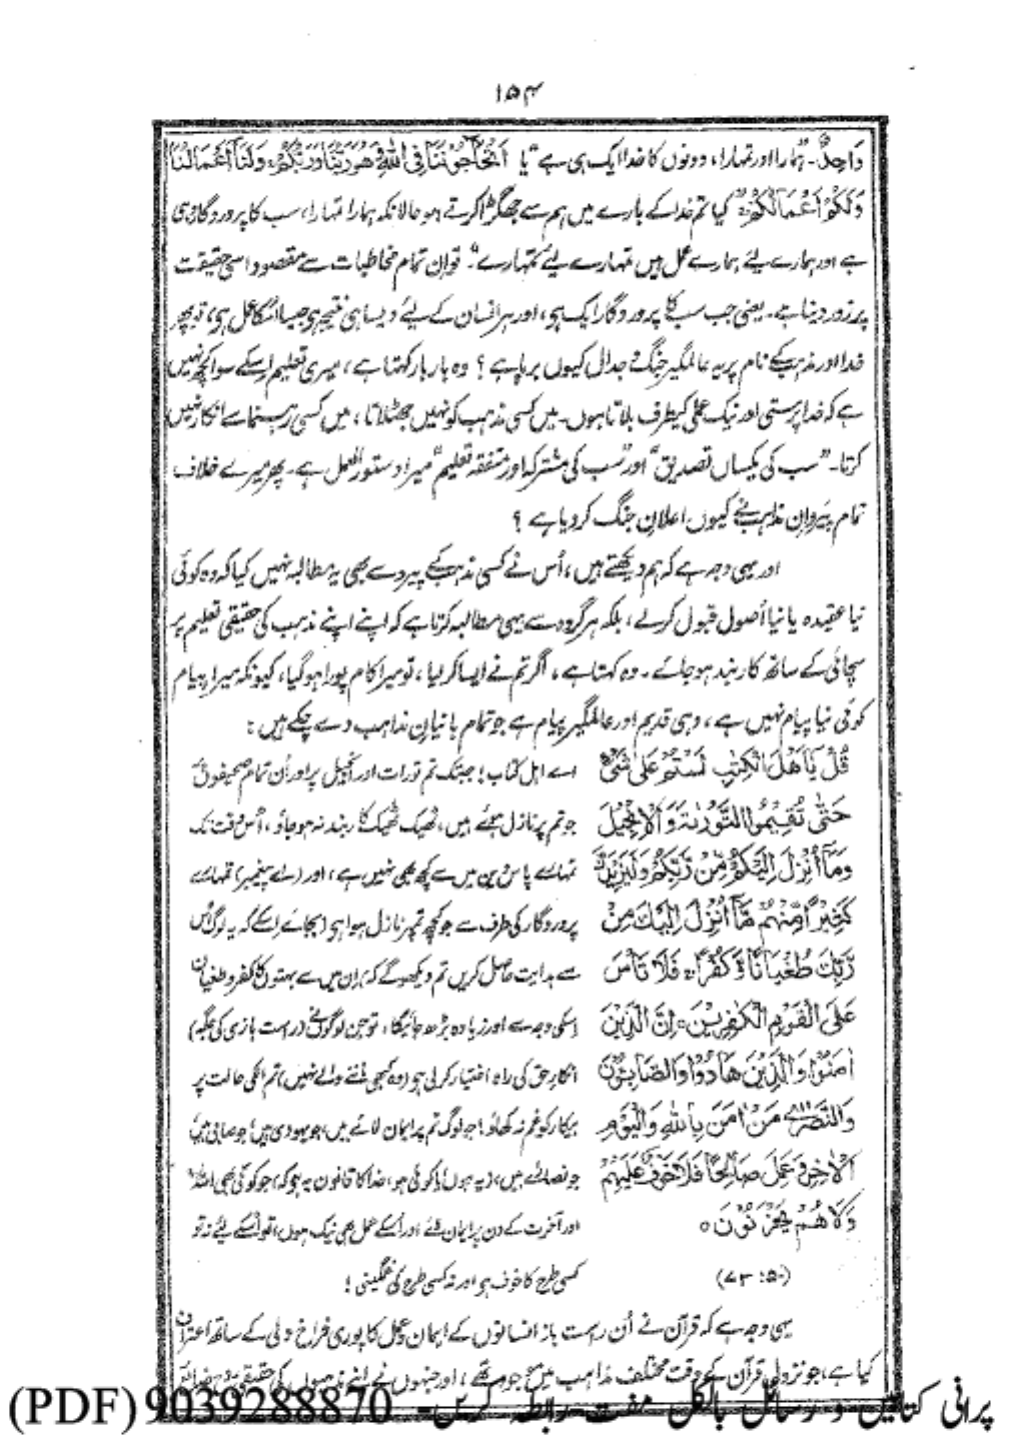 ۱۵۴
وَاحِدٌ۔ "ہمارا اور تمہارا، دونوں کا خدا ایک ہی ہے" یا اَتُحَاجُّوْنَنَا فِی اللّٰہِ وَھُوَ رَبُّنَا وَرَبُّکُمْ، وَلَنَا اَعْمَالُنَا
وَلَکُمْ اَعْمَالُکُمْ۔ "کیا تم خدا کے بارے میں ہم سے جھگڑا کرتے ہو حالانکہ ہمارا تمہارا، سب کا پروردگار وہی
ہے اور ہمارے لئے ہمارے عمل ہیں تمہارے لیے تمہارے"۔ تو ان تمام مخاطبات سے مقصود اسی حقیقت
پر زور دینا ہے۔ یعنی جب سب کا پروردگار ایک ہی، اور ہر انسان کے لیے ویسا ہی نتیجہ ہی جیسا اسکا عمل ہی، تو پھر
خدا اور مذہب کے نام پر یہ عالمگیر جنگ و جدال کیوں برپا ہے؟ وہ بار بار کہتا ہے، میری تعلیم اسکے سوا کچھ نہیں
ہے کہ خدا پرستی اور نیک عملی کیطرف بلاتا ہوں۔ میں کسی مذہب کو نہیں جھٹلاتا، میں کسی رہنما سے انکار نہیں
کرتا۔ "سب کی یکساں تصدیق" اور "سب کی مشترکہ اور متفقہ تعلیم" میرا دستور العمل ہے۔ پھر میرے خلاف
تمام پیروانِ مذاہب نے کیوں اعلانِ جنگ کر دیا ہے؟
اور یہی وجہ ہے کہ ہم دیکھتے ہیں، اُس نے کسی مذہب کے پیرو سے بھی یہ مطالبہ نہیں کیا کہ وہ کوئی
نیا عقیدہ یا نیا اُصول قبول کرلے، بلکہ ہر گروہ سے یہی مطالبہ کرتا ہے کہ اپنے اپنے مذہب کی حقیقی تعلیم پر
سچائی کے ساتھ کاربند ہو جائے۔ وہ کہتا ہے، اگر تم نے ایسا کر لیا، تو میرا کام پورا ہو گیا، کیونکہ میرا پیام
کوئی نیا پیام نہیں ہے، وہی قدیم اور عالمگیر پیام ہے جو تمام بانیانِ مذاہب دے چکے ہیں:
قُلْ یٰٓاَھْلَ الْکِتٰبِ لَسْتُمْ عَلٰی شَیْءٍ
حَتّٰی تُقِیْمُوا التَّوْرٰىةَ وَالْاِنْجِیْلَ
وَمَآ اُنْزِلَ اِلَیْکُمْ مِّنْ رَّبِّکُمْ وَلَیَزِیْدَنَّ
کَثِیْرًا مِّنْھُمْ مَّآ اُنْزِلَ اِلَیْكَ مِنْ
رَّبِّكَ طُغْیَانًا وَّکُفْرًا، فَلَا تَاْسَ
عَلَی الْقَوْمِ الْکٰفِرِیْنَ، اِنَّ الَّذِیْنَ
اٰمَنُوْا وَالَّذِیْنَ ھَادُوْا وَالصَّابِئُوْنَ
وَالنَّصٰرٰی مَنْ اٰمَنَ بِاللّٰہِ وَالْیَوْمِ
الْاٰخِرِ وَعَمِلَ صَالِحًا فَلَا خَوْفٌ عَلَیْھِمْ
وَلَا ھُمْ یَحْزَنُوْنَ ہ
(۵: ۷۳)
اے اہل کتاب! جبتک تم تورات اور انجیل پر اور اُن تمام صحیفوں پر
جو تم پر نازل ہوئے ہیں، ٹھیک ٹھیک کاربند نہ ہو جاؤ، اُس وقت تک
تمہارے پاس دین میں سے کچھ بھی نہیں ہے، اور (اے پیغمبر) تمہارے
پروردگار کی طرف سے جو کچھ تم پر نازل ہوا ہی (بجائے اسکے کہ یہ لوگ اُس
سے ہدایت حاصل کریں تم دیکھوگے کہ) ان میں سے بہتوں کا کفر و طغیان
اسکی وجہ سے اور زیادہ بڑھ جائیگا، تو جن لوگوں نے (راست بازی کی جگہ)
انکارِ حق کی راہ اختیار کرلی ہو (وہ کبھی ماننے والے نہیں) تم انکی حالت پر
بیکار کو غم نہ کھاؤ! جو لوگ تم پر ایمان لائے ہیں، جو یہودی ہیں، جو صابی ہیں
جو نصاریٰ ہیں، (یہ ہوں یا کوئی ہو، خدا کا قانون یہ ہی کہ) جو کوئی بھی اللہ پر
اور آخرت کے دن پر ایمان لائے اور اُسکے عمل بھی نیک ہوں، تو اُسکے لیے نہ تو
کسی طرح کا خوف ہی اور نہ کسی طرح کی غمگینی!
یہی وجہ ہے کہ قرآن نے اُن راست باز انسانوں کے ایمان و عمل کا پوری فراخ دلی کے ساتھ اعتراف
کیا ہے، جو نزولِ قرآن کے وقت مختلف مذاہب میں موجود تھے، اور جنہوں نے اپنے مذہبوں کی حقیقی
پرانی کتابیں و رسائل بالکل مفت رابطہ کریں۔ 9039288870 (PDF)